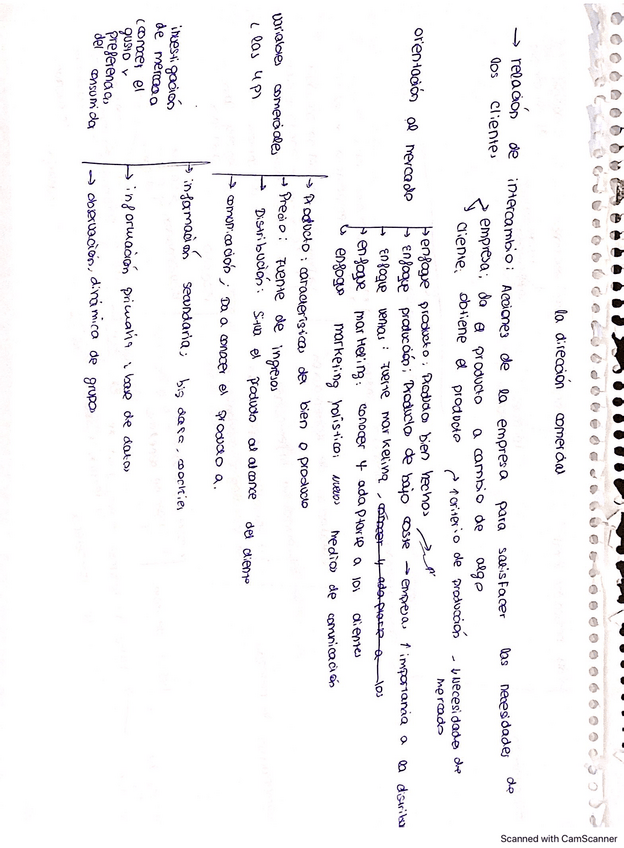 la dirección comercial
→ relación de intercambio; Acciones de la empresa para satisfacer las necesidades de
los clientes
→ empresa; da el producto a cambio de algo
cliente, obtiene el producto
↑ criterio de producción - ↓ necesidades de
mercado
orientación al mercado
→ enfoque producto: Producto bien hechos
→ enfoque producción; Producto de bajo coste → empresa, ↑ importancia a la distribu
→ enfoque ventas: fuerte marketing, conocer y adaptarse a los
→ enfoque marketing: conocer y adaptarse a los clientes
↳ enfoque marketing holístico; nuevos medios de comunicación
variables comerciales
(las 4P)
→ Producto: características del bien o producto
→ Precio; fuente de ingresos
→ Distribución: Situa el producto al alcance del cliente
→ comunicación; Da a conocer el producto a.
investigación
de mercado
(conocer el
gusto y
preferencias
del consumido
→ información secundaria; big data, cookies
→ información primaria; base de datos
→ observación, dinámica de grupos
Scanned with CamScanner